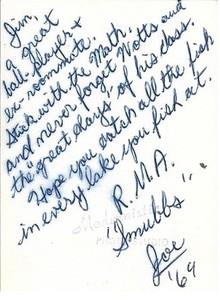 Jim,
a great
ball-player &
ex-roommate.
Stick with the Math.
and never forget Motts and
the "great days" of his class.
Hope you catch all the fish
in every lake you fish at.
R.M.A.
"Smubbs"
Joe
'69